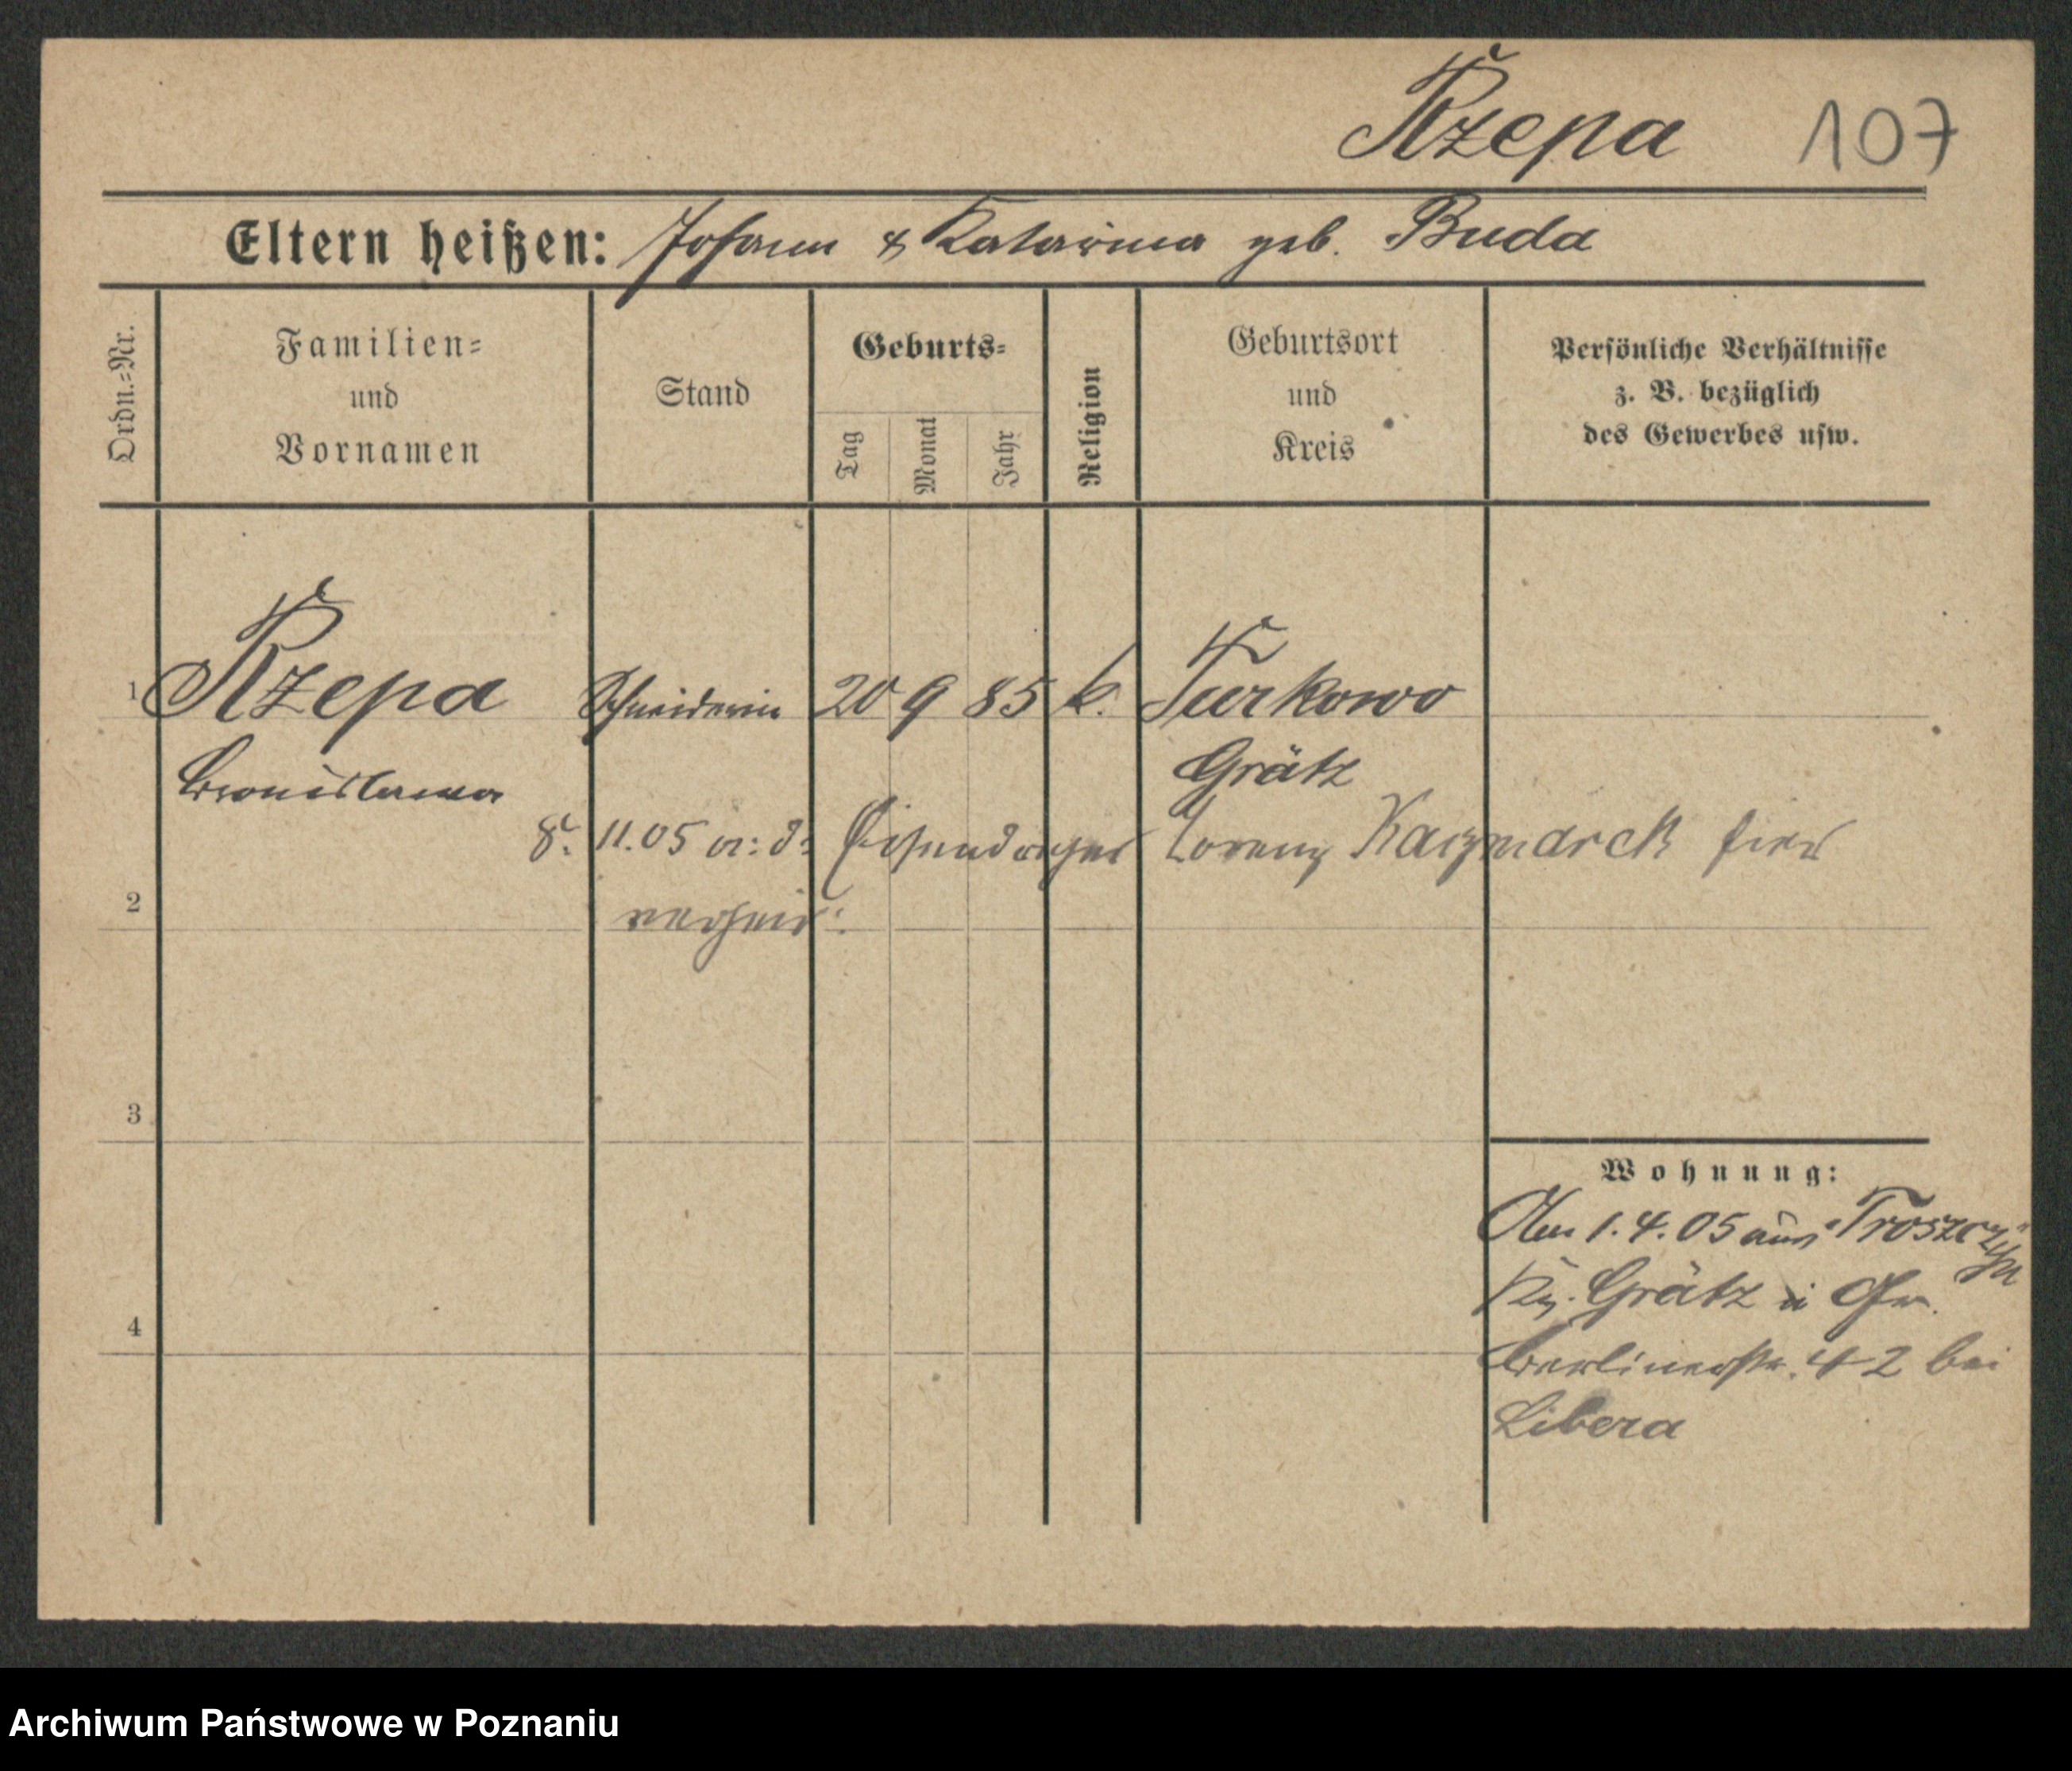 Rzepa 107
Eltern heißen: Johann & Katarina geb. Buda
Ordn.-Nr.
Familien-
und
Vornamen
Stand
Geburts-
Tag
Monat
Jahr
Religion
Geburtsort
und
Kreis
Persönliche Verhältnisse
z. B. bezüglich
des Gewerbes usw.
1 Rzepa Schneiderin 20 9 85 k. Turkowo
Bronislawa Grätz
8. 11.05 m: d: Lorenz Kaczmarek hier
2 verheir:
3
Wohnung:
Am 1.4.05 aus Troszczyn
Kr. Grätz
4
Berlinerstr. 42 bei
Libera
Archiwum Państwowe w Poznaniu